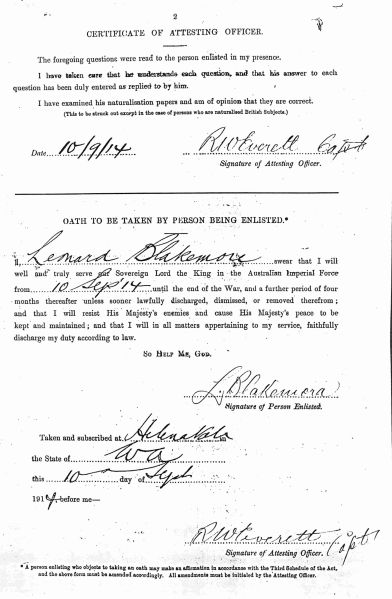 2
CERTIFICATE OF ATTESTING OFFICER.
The foregoing questions were read to the person enlisted in my presence.
I have taken care that he understands each question, and that his answer to each
question has been duly entered as replied to by him.
I have examined his naturalisation papers and am of opinion that they are correct.
(This to be struck out except in the case of persons who are naturalised British Subjects.)
Date 10/9/14 R W Everett Capt
Signature of Attesting Officer.
OATH TO BE TAKEN BY PERSON BEING ENLISTED.*
I, Lenard Blakemore swear that I will
well and truly serve our Sovereign Lord the King in the Australian Imperial Force
from 10 Sep 14 until the end of the War, and a further period of four
months thereafter unless sooner lawfully discharged, dismissed, or removed therefrom;
and that I will resist His Majesty's enemies and cause His Majesty's peace to be
kept and maintained; and that I will in all matters appertaining to my service, faithfully
discharge my duty according to law.
SO HELP ME, GOD.
L. Blakemore
Signature of Person Enlisted.
Taken and subscribed at Helena Vale
the State of WA
this 10 day of Sept
1914, before me—
R W Everett Capt
Signature of Attesting Officer.
* A person enlisting who objects to taking an oath may make an affirmation in accordance with the Third Schedule of the Act,
and the above form must be amended accordingly. All amendments must be initialed by the Attesting Officer.